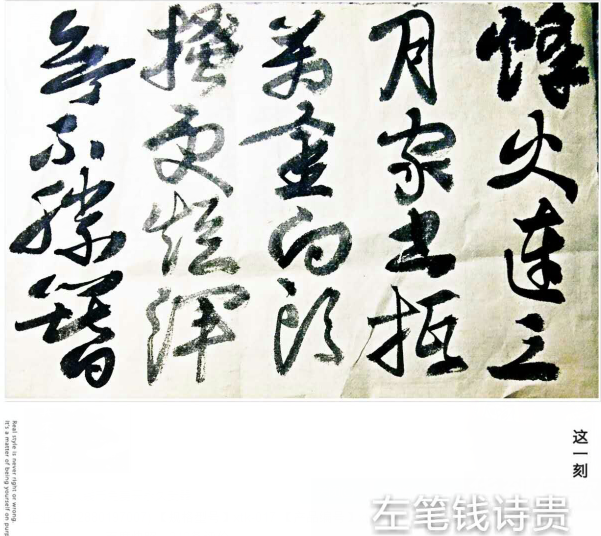 烽火連三
月家書抵
萬金白頭
搔更短渾
無不勝簪
这一刻
Real style is never right or wrong.
It's a matter of being yourself on purp
左笔钱诗贵